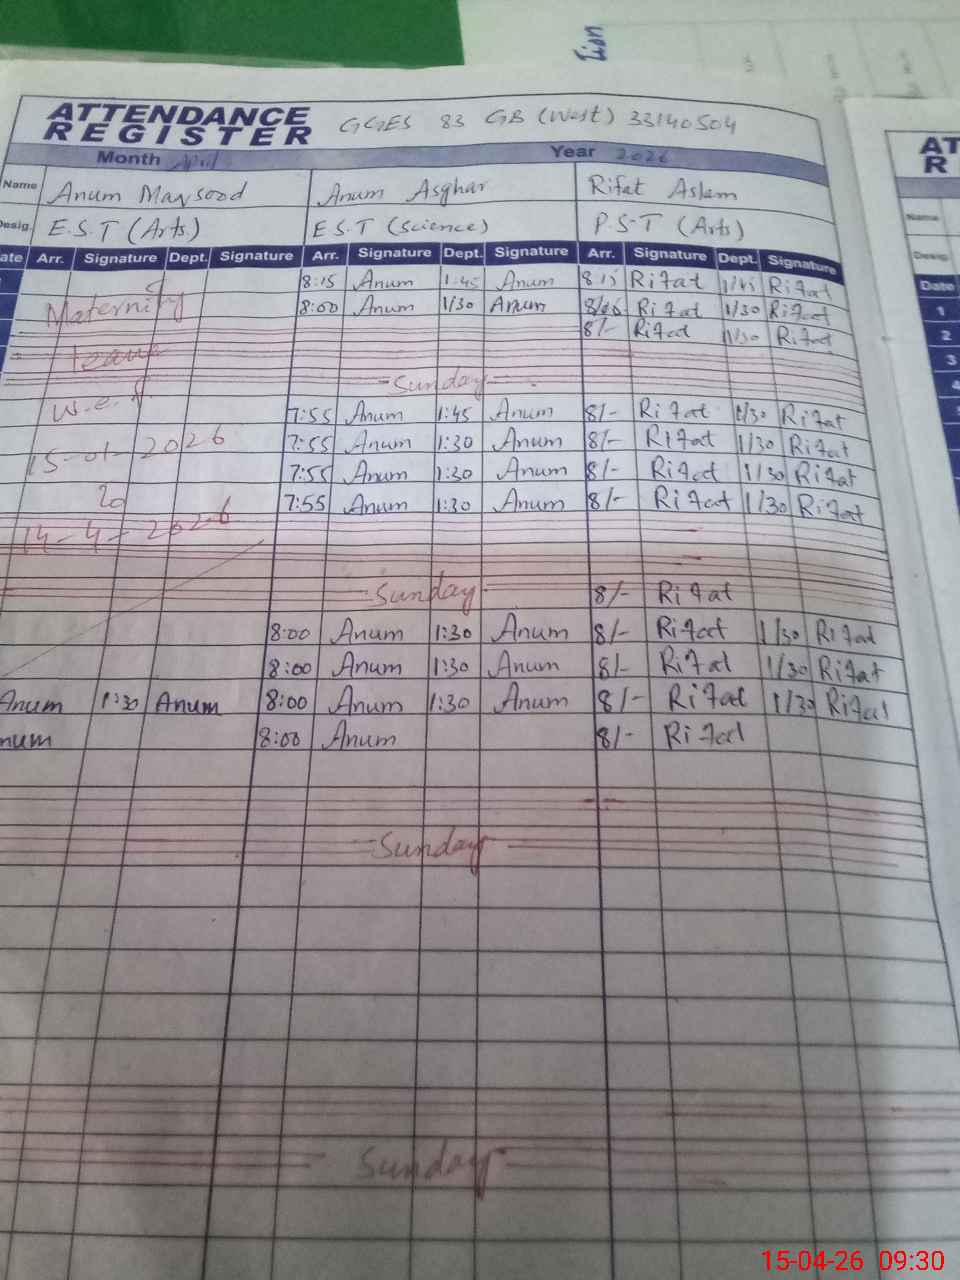 ATTENDANCE REGISTER GGES 83 GB (West) 33140504
Month April Year 2026
Name Anum Maqsood Anum Asghar Rifat Aslam
Desig. E.S.T (Arts) E.S.T (Science) P.S.T (Arts)
Date Arr. Signature Dept. Signature Arr. Signature Dept. Signature Arr. Signature Dept. Signature
8:15 Anum 1:45 Anum 8/15 Rifat 1/45 Rifat
Maternity 8:00 Anum 1/30 Anum Rifat 1/30 Rifat
8/- Rifat 1/30 Rifat
Sunday
w.e.f 7:55 Anum 1:45 Anum 8/- Rifat 1/30 Rifat
15-01-2026 7:55 Anum 1:30 Anum 8/- Rifat 1/30 Rifat
7:55 Anum 1:30 Anum 8/- Rifat 1/30 Rifat
7:55 Anum 1:30 Anum 8/- Rifat 1/30 Rifat
14-4-2026
Sunday 8/- Rifat
8:00 Anum 1:30 Anum 8/- Rifat 1/30 Rifat
8:00 Anum 1:30 Anum 8/- Rifat 1/30 Rifat
Anum 1:30 Anum 8:00 Anum 1:30 Anum 8/- Rifat 1/30 Rifat
num 8:00 Anum 8/- Rifat
Sunday
Sunday
AT
R
Name
Desig.
Date
1
2
3
4
15-04-26 09:30